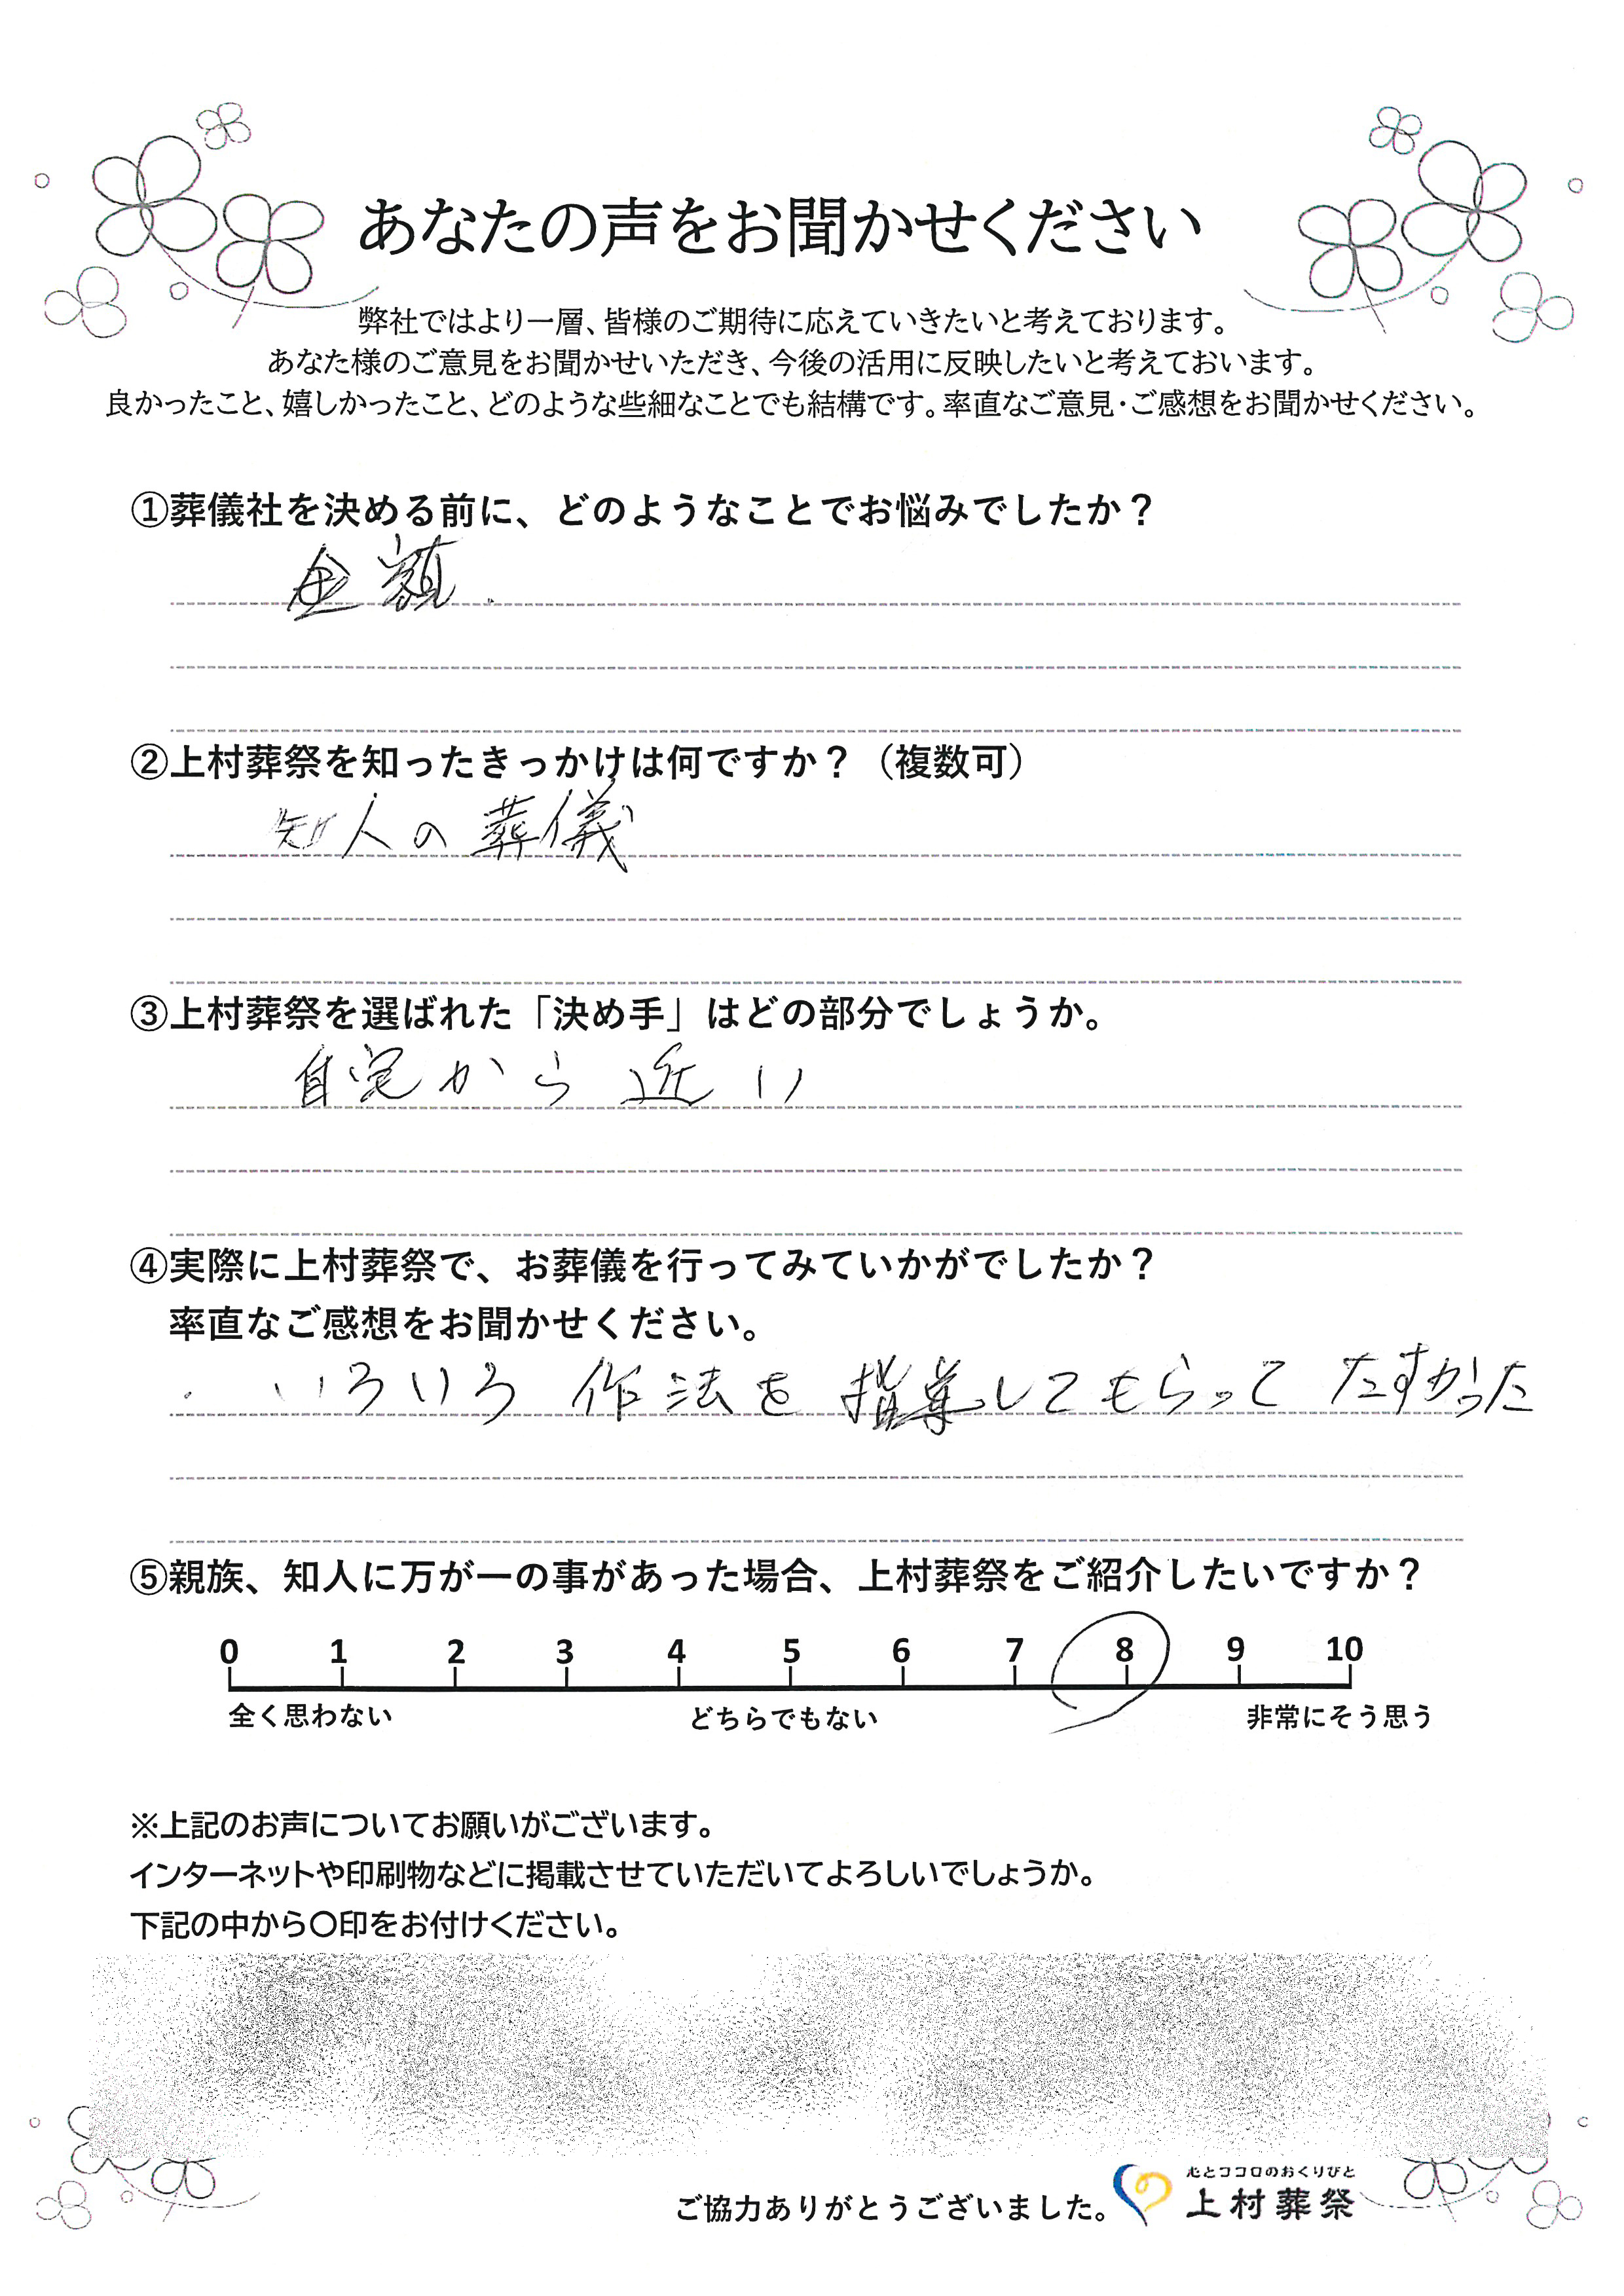 あなたの声をお聞かせください
弊社ではより一層、皆様のご期待に応えていきたいと考えております。
あなた様のご意見をお聞かせいただき、今後の活用に反映したいと考えておいます。
良かったこと、嬉しかったこと、どのような些細なことでも結構です。率直なご意見・ご感想をお聞かせください。
①葬儀社を決める前に、どのようなことでお悩みでしたか？
金額.
②上村葬祭を知ったきっかけは何ですか？（複数可）
知人の葬儀
③上村葬祭を選ばれた「決め手」はどの部分でしょうか。
自宅から近い
④実際に上村葬祭で、お葬儀を行ってみていかがでしたか？
率直なご感想をお聞かせください。
・いろいろ作法を指導してもらってたすかった
⑤親族、知人に万が一の事があった場合、上村葬祭をご紹介したいですか？
0 1 2 3 4 5 6 7 8 9 10
全く思わない どちらでもない 非常にそう思う
※上記のお声についてお願いがございます。
インターネットや印刷物などに掲載させていただいてよろしいでしょうか。
下記の中から〇印をお付けください。
心とココロのおくりびと
ご協力ありがとうございました。 上村葬祭